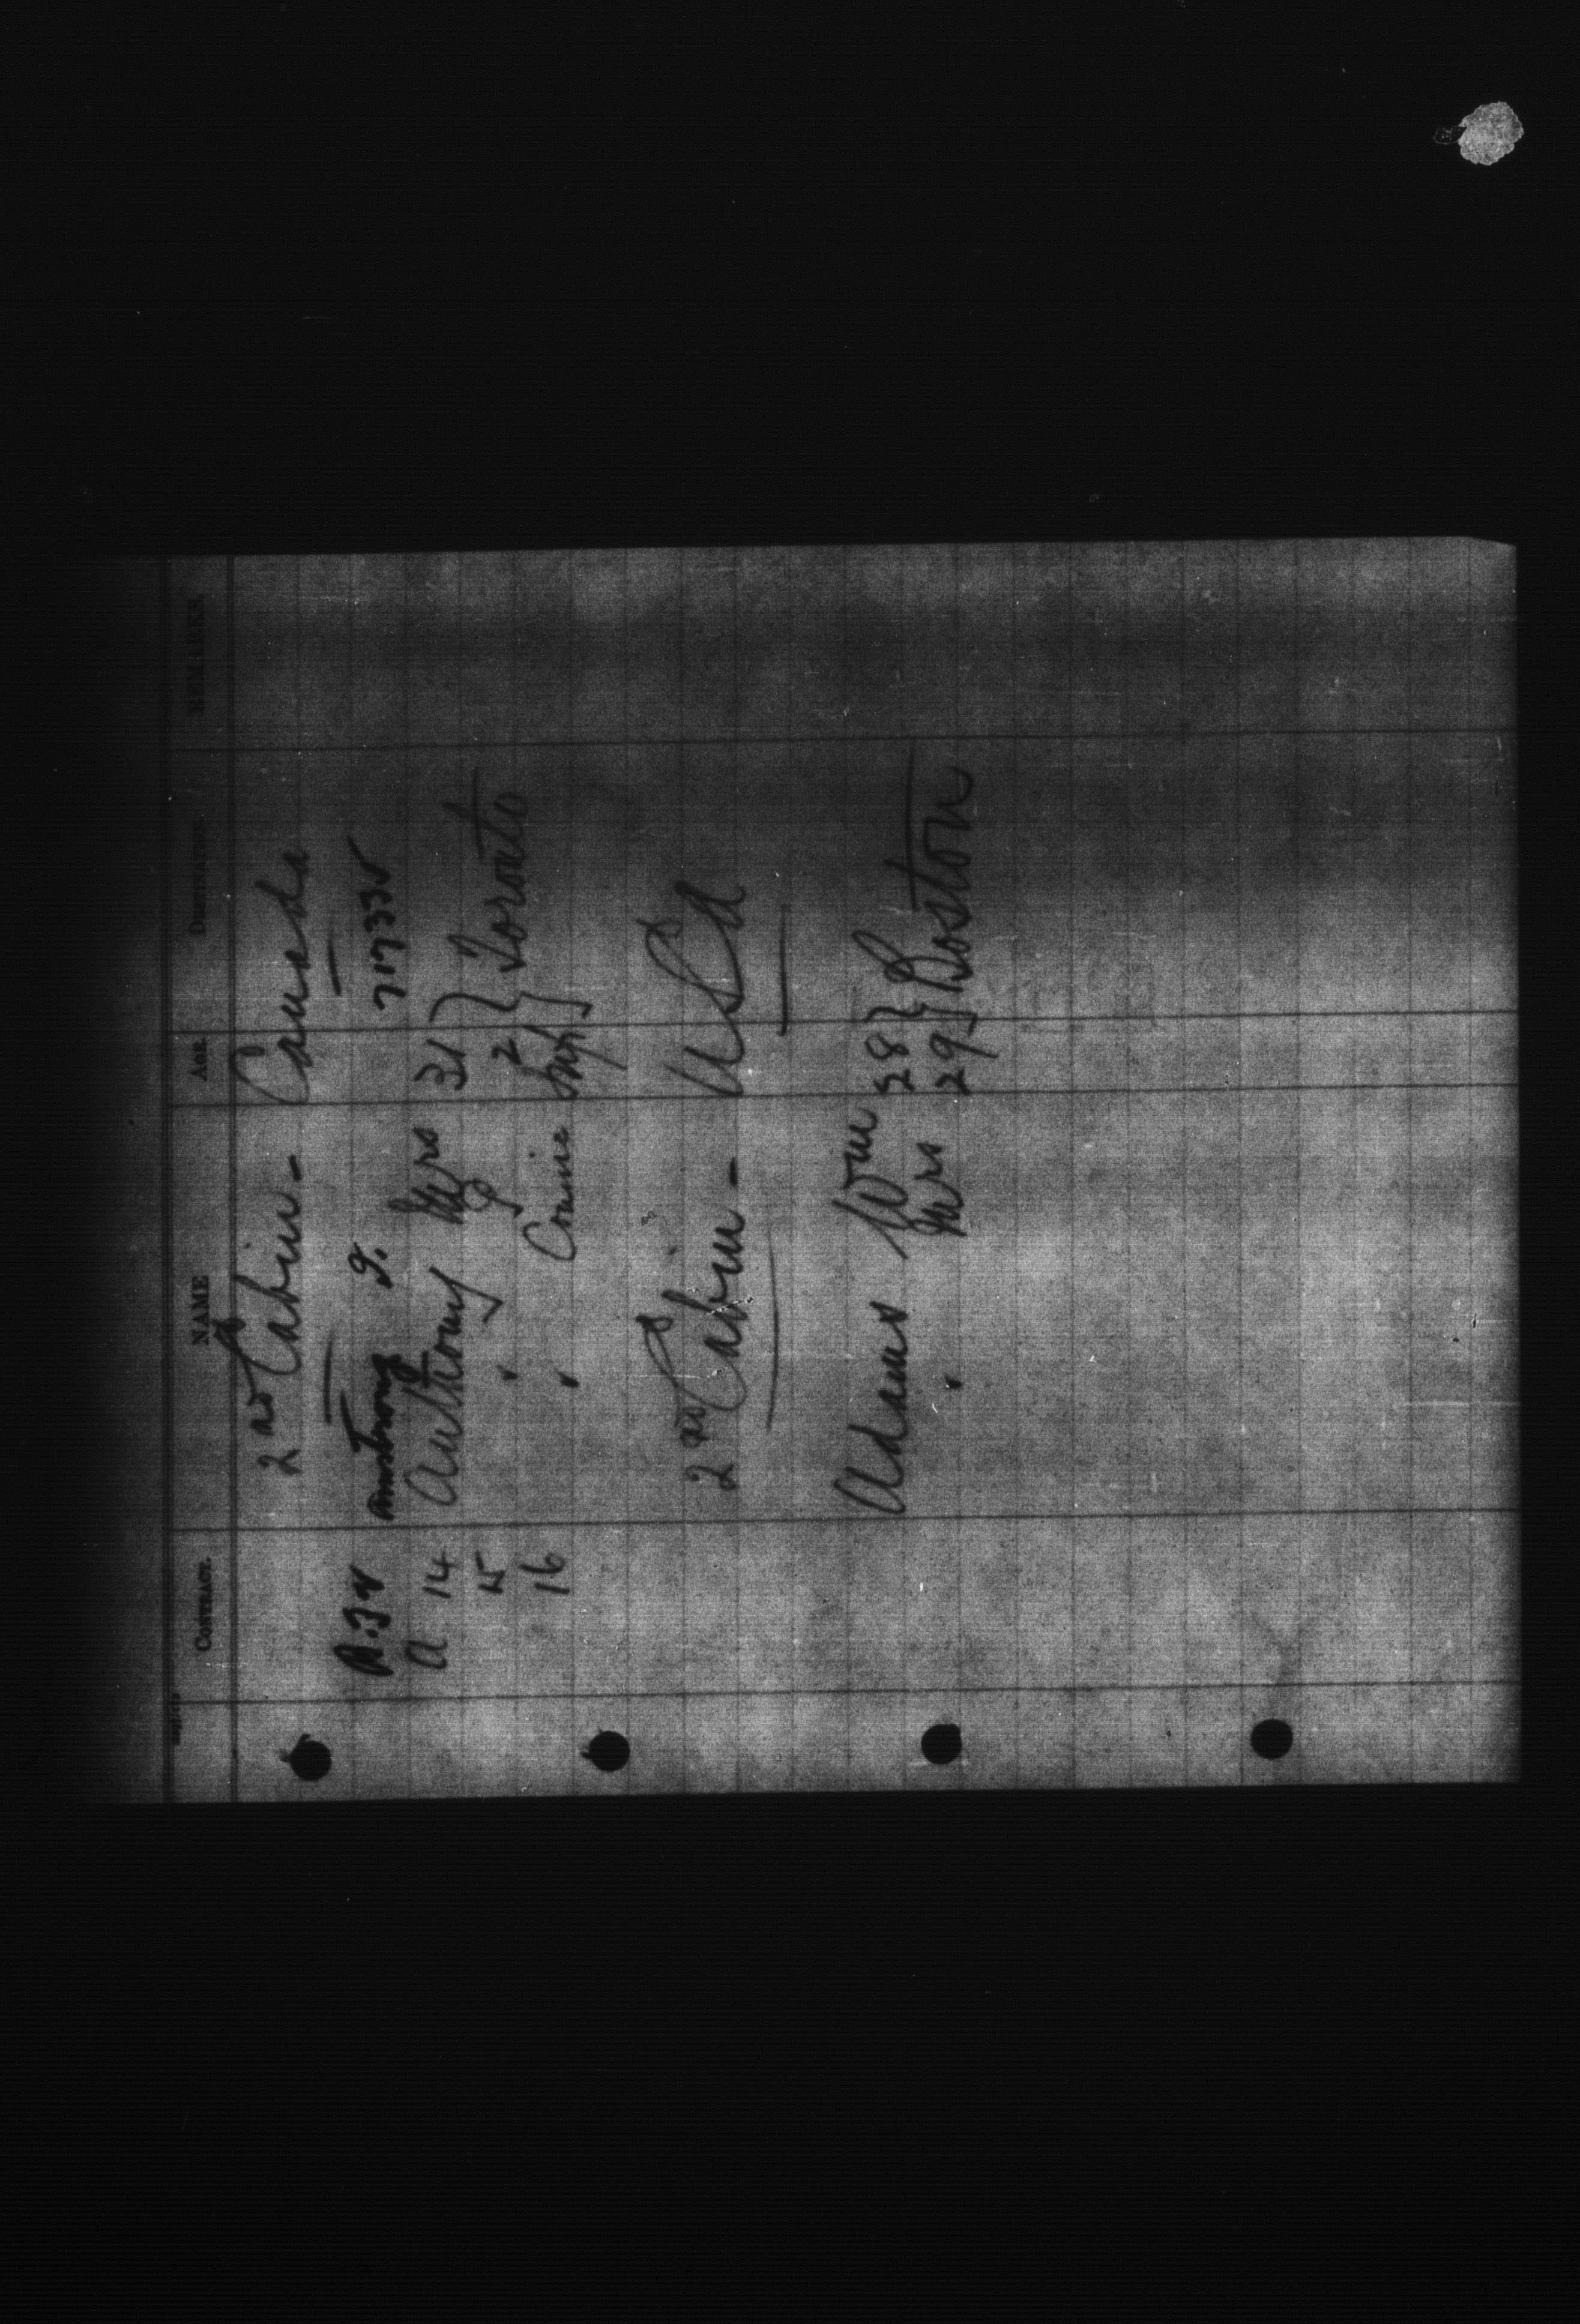 CONTRACT. NAME AGE. DESTINATION. REMARKS.
2nd Cabin - Canada
A. 38 Armstrong J. 717335
A 14 Anthony Mrs 31 } Toronto
15 " 2
16 " Connie Inf
2nd Cabin - USA
Adams Wm 28 } Boston
" Mrs 29